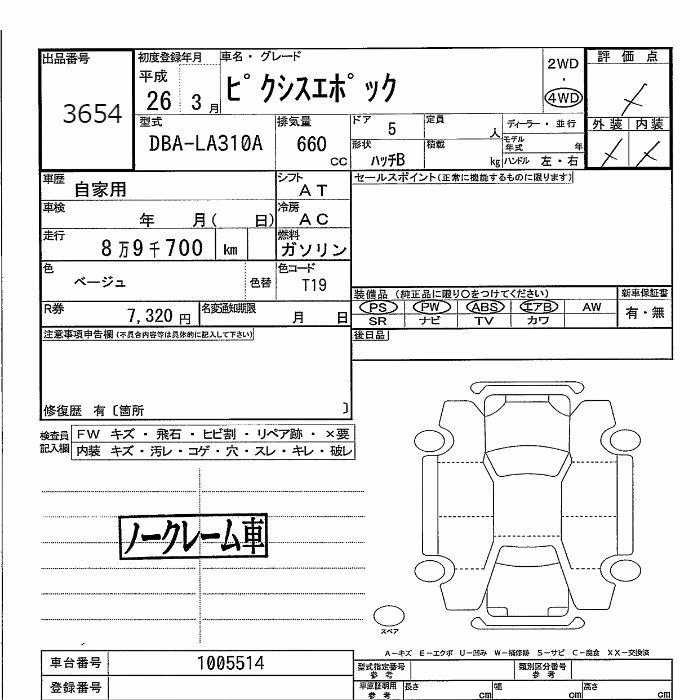 出品番号
3654
初度登録年月
平成
26 3月
車名・グレード
ピクシスエポック
2WD
・
4WD
評価点
外装 内装
型式
DBA-LA310A
排気量
660
CC
ドア
5
定員
人
形状
ハッチB
積載
kg
ディーラー・並行
モデル年式
年
ハンドル 左・右
車歴
自家用
シフト
AT
セールスポイント(正常に機能するものに限ります)
車検
年 月( 日)
冷房
AC
走行
8万9千700 km
燃料
ガソリン
色
ベージュ
色替
色コード
T19
装備品 (純正品に限り〇をつけてください)
新車保証書
PS PW ABS エアB AW
有・無
SR ナビ TV カワ
R券
7,320 円
名変通知期限
月 日
後日品
注意事項申告欄(不具合内容等は具体的に記入して下さい)
修復歴 有〔箇所 〕
検査員
記入欄
FW キズ・飛石・ヒビ割・リペア跡・×要
内装 キズ・汚レ・コゲ・穴・スレ・キレ・破レ
ノークレーム車
スペア
A-キズ E-エクボ U-凹み W-補修跡 S-サビ C-腐食 XX-交換済
車台番号
1005514
型式指定番号
参考
類別区分番号
参考
登録番号
車庫証明用
参考
長さ
cm
幅
cm
高さ
cm